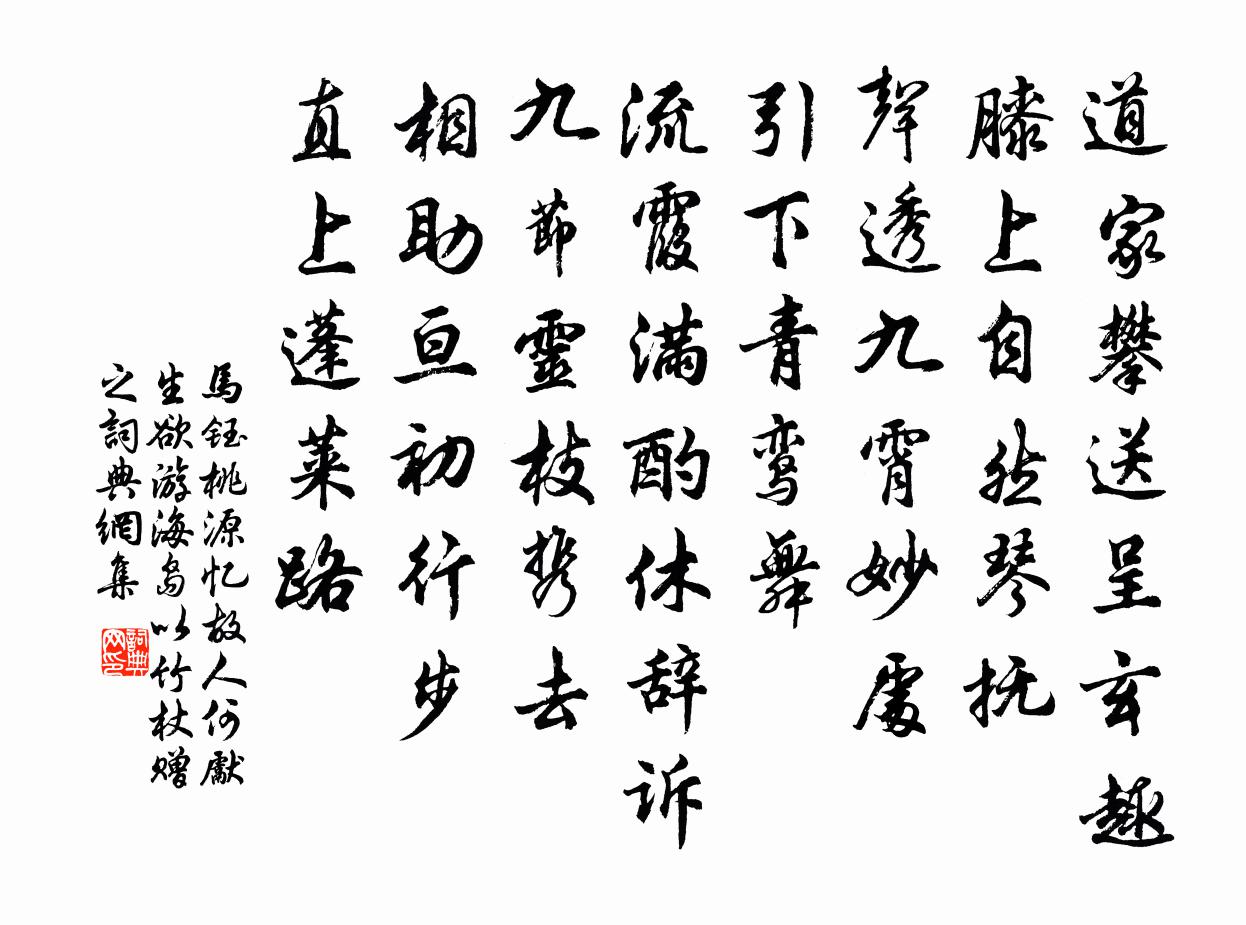 道家攀送呈玄趣
膝上自然琴抚
聲透九霄妙處
引下青鸾舞
流霞滿酌休辞诉
九節靈枝携去
相助亘初行步
直上蓬莱路
馬鈺桃源忆故人何獻
生欲游海岛以竹杖赠
之詞典網集
詞典网印